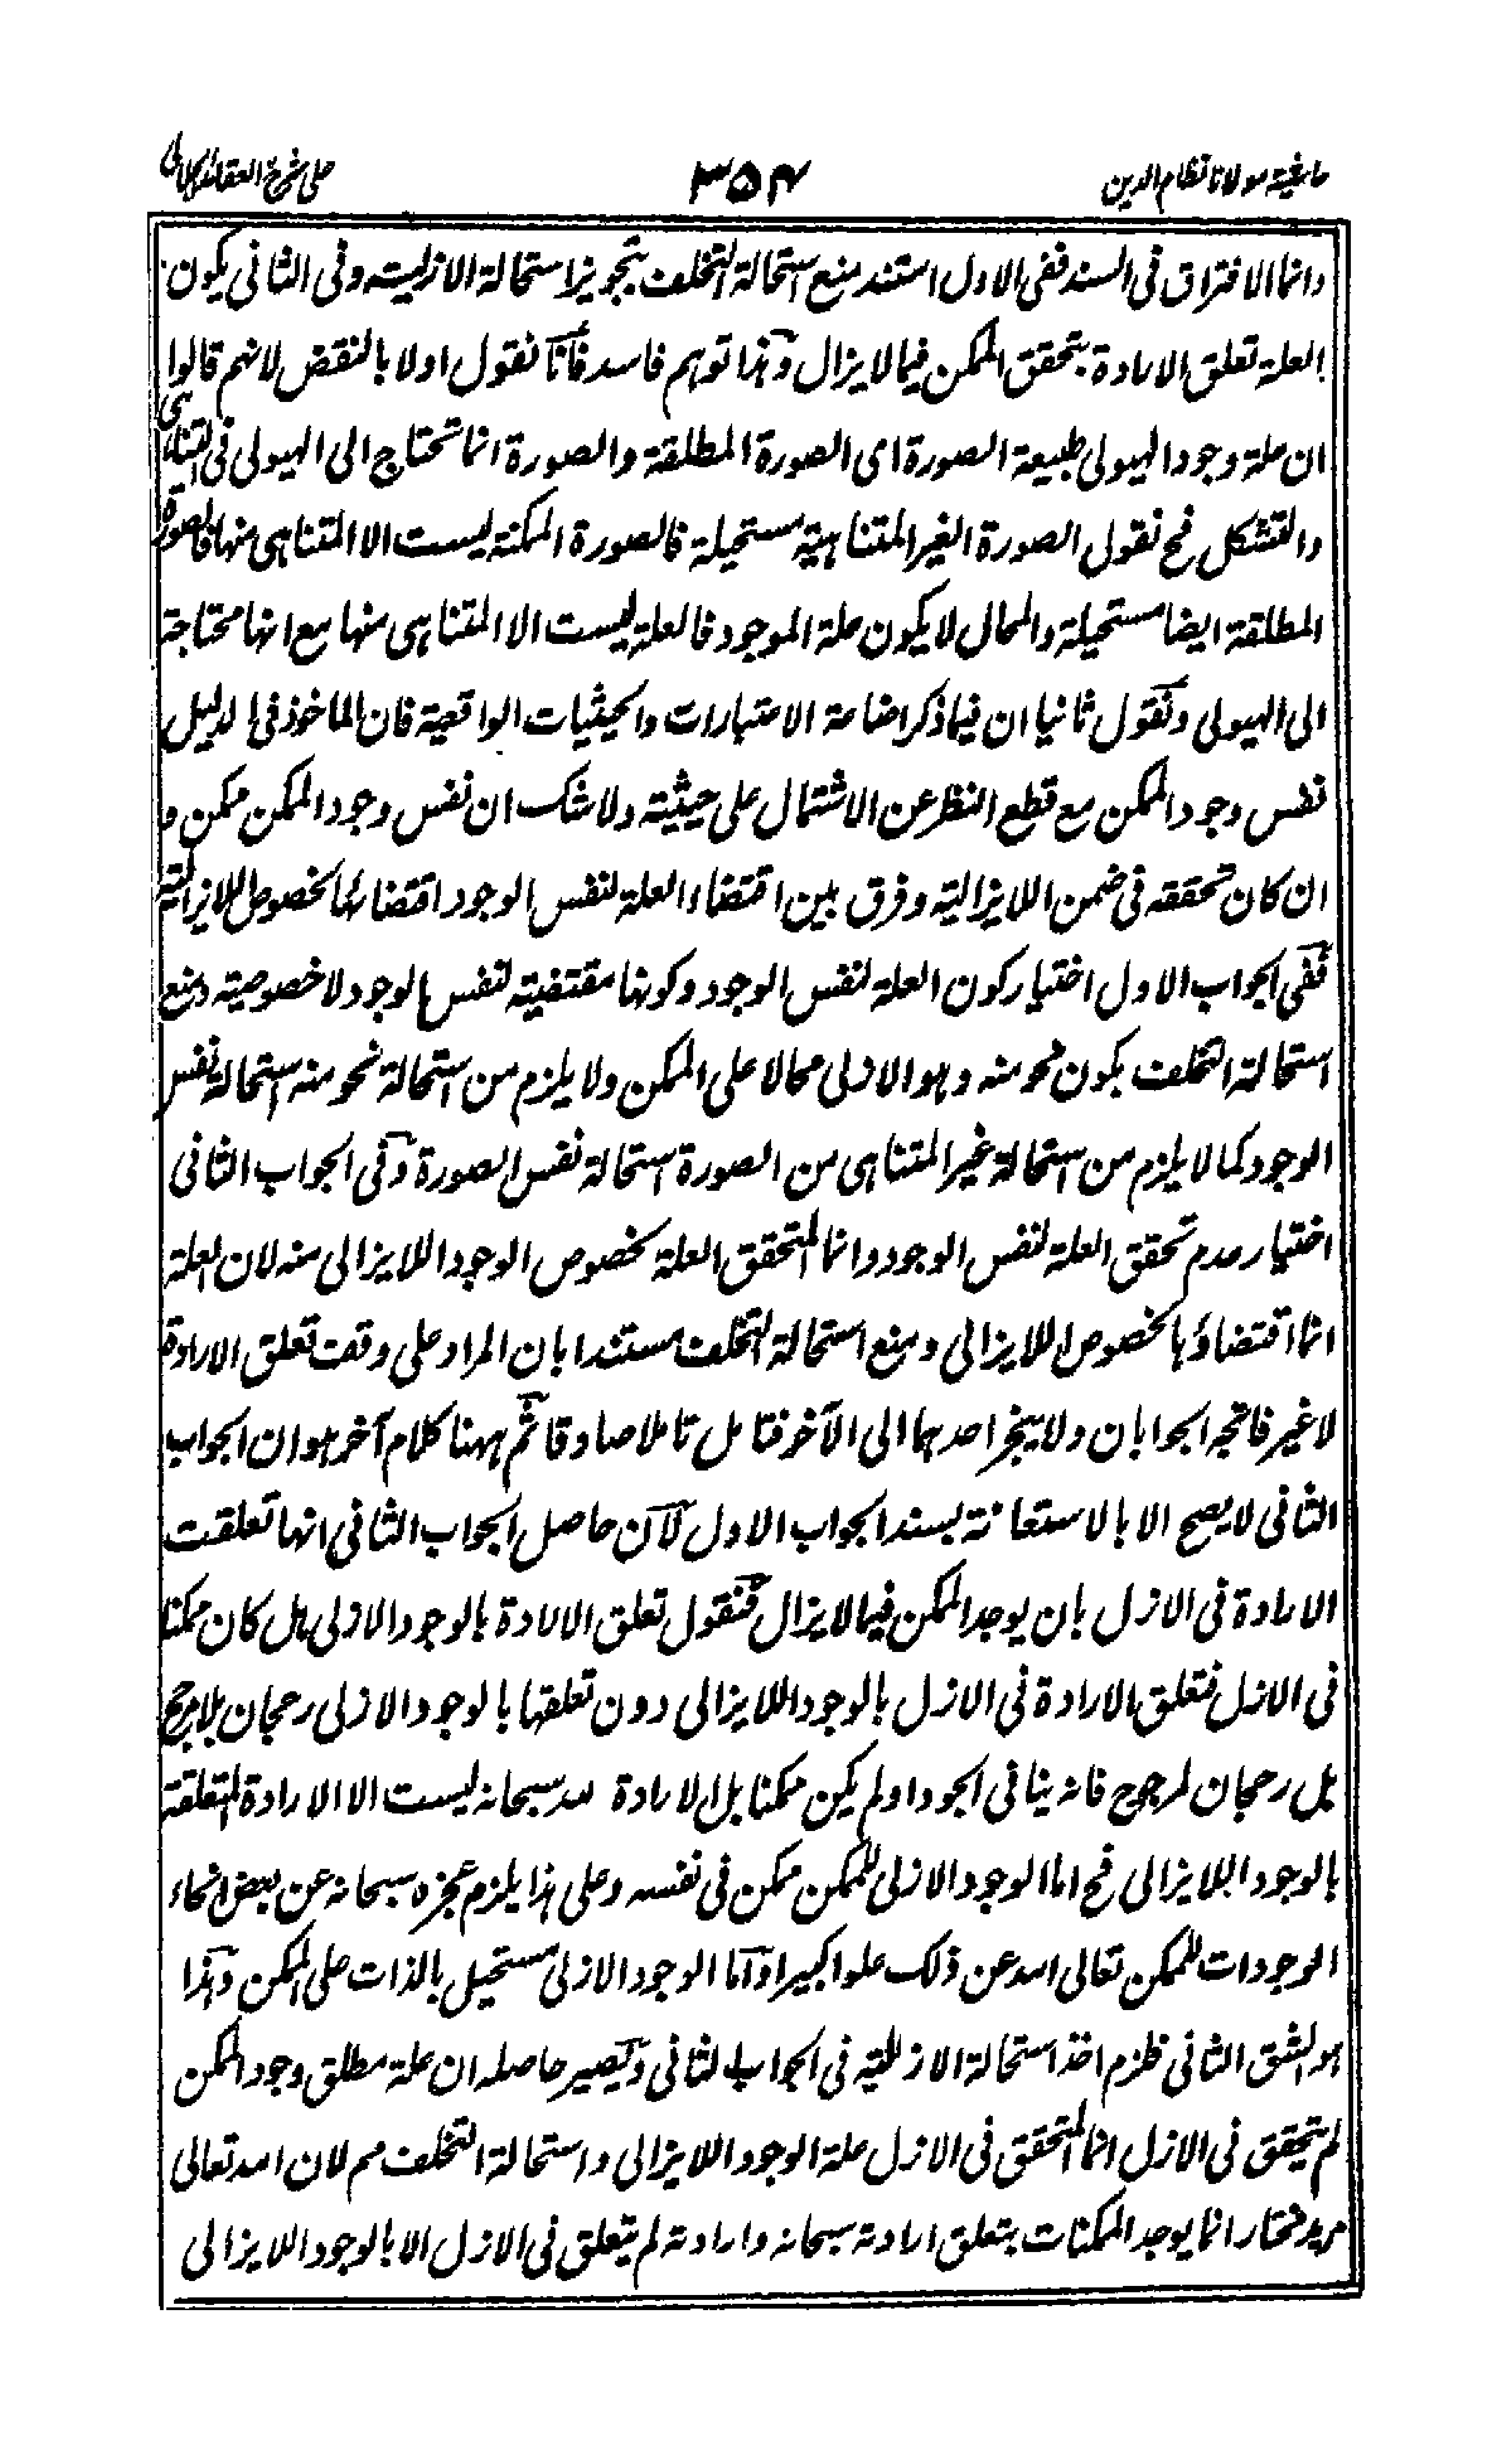 حاشیة مولانا نظام الدین
۳۵۴
علی شرح العقائد الجلالی
وانما الافتراق فی السند ففی الاول استند منع استحالة التخلف بتجویز استحالة الازلیته وفی الثانی یکون
العلة تعلق الارادة بتحقق الممکن فیما لا یزال وهذا توهم فاسد فانا نقول اولا بالنقض لانهم قالوا
ان علة وجود الهیولی طبیعة الصورة ای الصورة المطلقة والصورة انما تحتاج الی الهیولی فی التناهی
والتشکل فح نقول الصورة الغیر المتناهیة مستحیلة فالصورة الممکنة لیست الا المتناهی منها فالصورة
المطلقة ایضا مستحیلة والمحال لا یکون علة الموجود فالعلة لیست الا المتناهی منها مع انها محتاجة
الی الهیولی ونقول ثانیا ان فیما ذکر اضاعة الاعتبارات والحیثیات الواقعیة فان الماخوذ فی الدلیل
نفس وجود الممکن مع قطع النظر عن الاشتمال علی حیثیة ولا شک ان نفس وجود الممکن ممکن و
ان کان تحققه فی ضمن اللایزالیة وفرق بین اقتضاء العلة لنفس الوجود اقتضائها لخصوص اللایزالیة
ففی الجواب الاول اختیار کون العلة لنفس الوجود وکونها مقتضیة لنفس الوجود لا خصوصیته ومنع
استحالة التخلف بکون نحو منه وهو الازلی محالا علی الممکن ولا یلزم من استحالة نحو منه استحالة نفس
الوجود کما لا یلزم من استحالة غیر المتناهی من الصورة استحالة نفس الصورة وفی الجواب الثانی
اختیار عدم تحقق العلة لنفس الوجود وانما المتحقق العلة لخصوص الوجود اللایزالی منه لان العلة
انما اقتضاؤها لخصوص اللایزالی ومنع استحالة التخلف مستندا بان المراد علی وقت تعلق الارادة
لا غیر فاتجه الجوابان ولا ینجر احدهما الی الآخر فتامل تاملا صادقا ثم ههنا کلام آخر هو ان الجواب
الثانی لا یصح الا بالاستعانة بسند الجواب الاول لان حاصل الجواب الثانی انها تعلقت
الارادة فی الازل بان یوجد الممکن فیما لا یزال فنقول تعلق الارادة بالوجود الازلی هل کان ممکنا
فی الازل فتعلق الارادة فی الازل بالوجود اللایزالی دون تعلقها بالوجود الازلی رجحان بلا مرجح
بل رجحان لمرجوح فانه ینافی الجود او لم یکن ممکنا بل الارادة لله سبحانه لیست الا الارادة المتعلقة
بالوجود اللایزالی فح اما الوجود الازلی للممکن ممکن فی نفسه وعلی هذا یلزم عجزه سبحانه عن بعض انحاء
الوجودات للممکن تعالی الله عن ذلک علوا کبیرا واما الوجود الازلی مستحیل بالذات علی الممکن وهذا
هو الشق الثانی فلزم اخذ استحالة الازلیة فی الجواب الثانی ویصیر حاصله ان علة مطلق وجود الممکن
لم تتحقق فی الازل انما المتحقق فی الازل علة الوجود اللایزالی واستحالة التخلف مم لان الله تعالی
مرید مختار انما یوجد الممکنات بتعلق ارادته سبحانه وارادته لم یتعلق فی الازل الا بالوجود اللایزالی